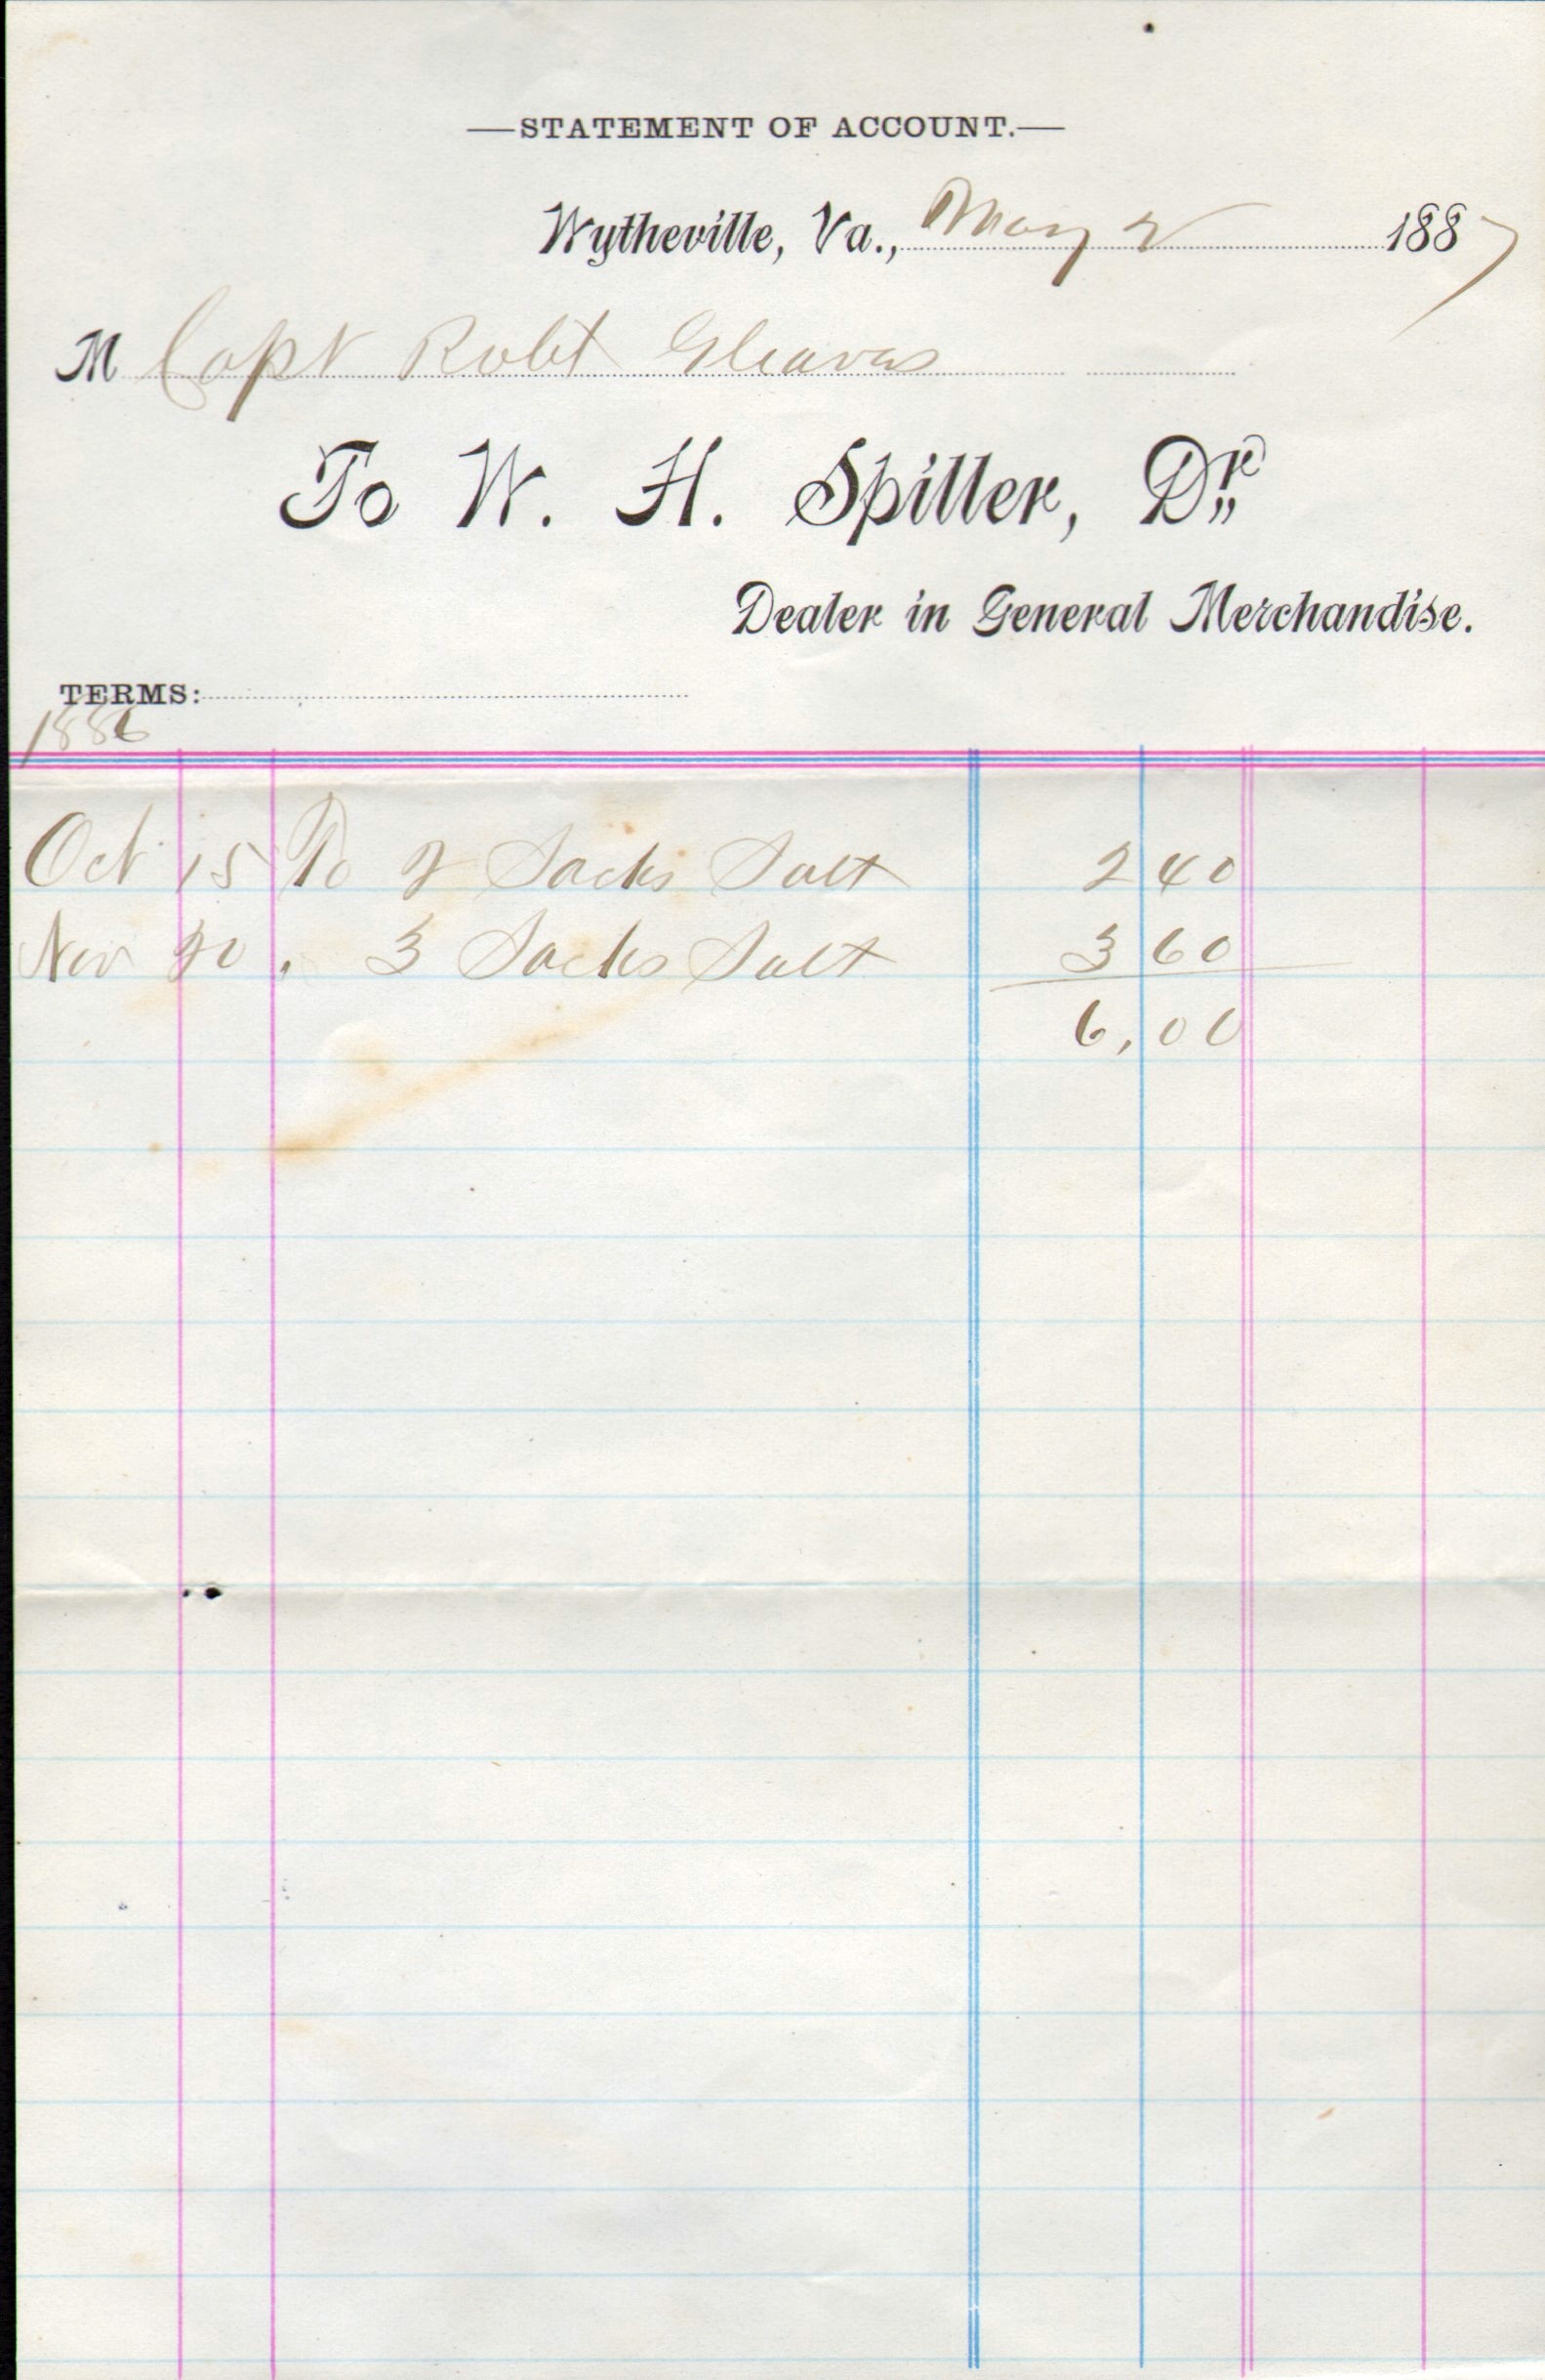 —STATEMENT OF ACCOUNT.—
Wytheville, Va., May 2 1887
M Capt Robt Gleaves
To W. H. Spiller, Dr
Dealer in General Merchandise.
TERMS:
1886
Oct 15 To 2 Sacks Salt 2 40
Nov 20 " 3 Sacks Salt 3 60
6,00